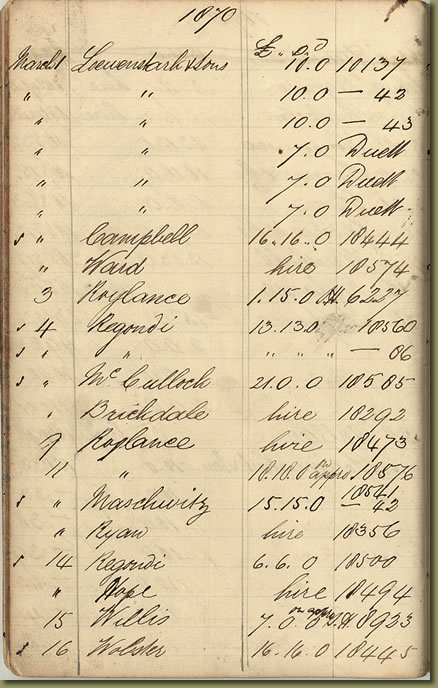 1870
£ s. d
March 1 Loewenstark & Sons 10.0 10137
" " 10.0 — 42
" " 10.0 — 43
" " 7.0 Duett
" " 7.0 Duett
" " 7.0 Duett
s " Campbell 16..16..0 18444
" Ward hire 18574
3 Roylance 1.15.0 S.H. 6227
s 4 Regondi 13.13.0 18560
s " " " " " — 86
s " McCulloch 21.0.0 18585
" Brichdale hire 18292
9 Roylance hire 18473
11 " 18.18.0 on appro 18576
18541
s " Maschwitz 15.15.0 — 42
" Ryan hire 18356
s 14 Regondi 6.6.0 18500
" Hope hire 18494
15 Willis 7.0.0 on appro S.H. 8923
s 16 Wolster 16.16.0 18445